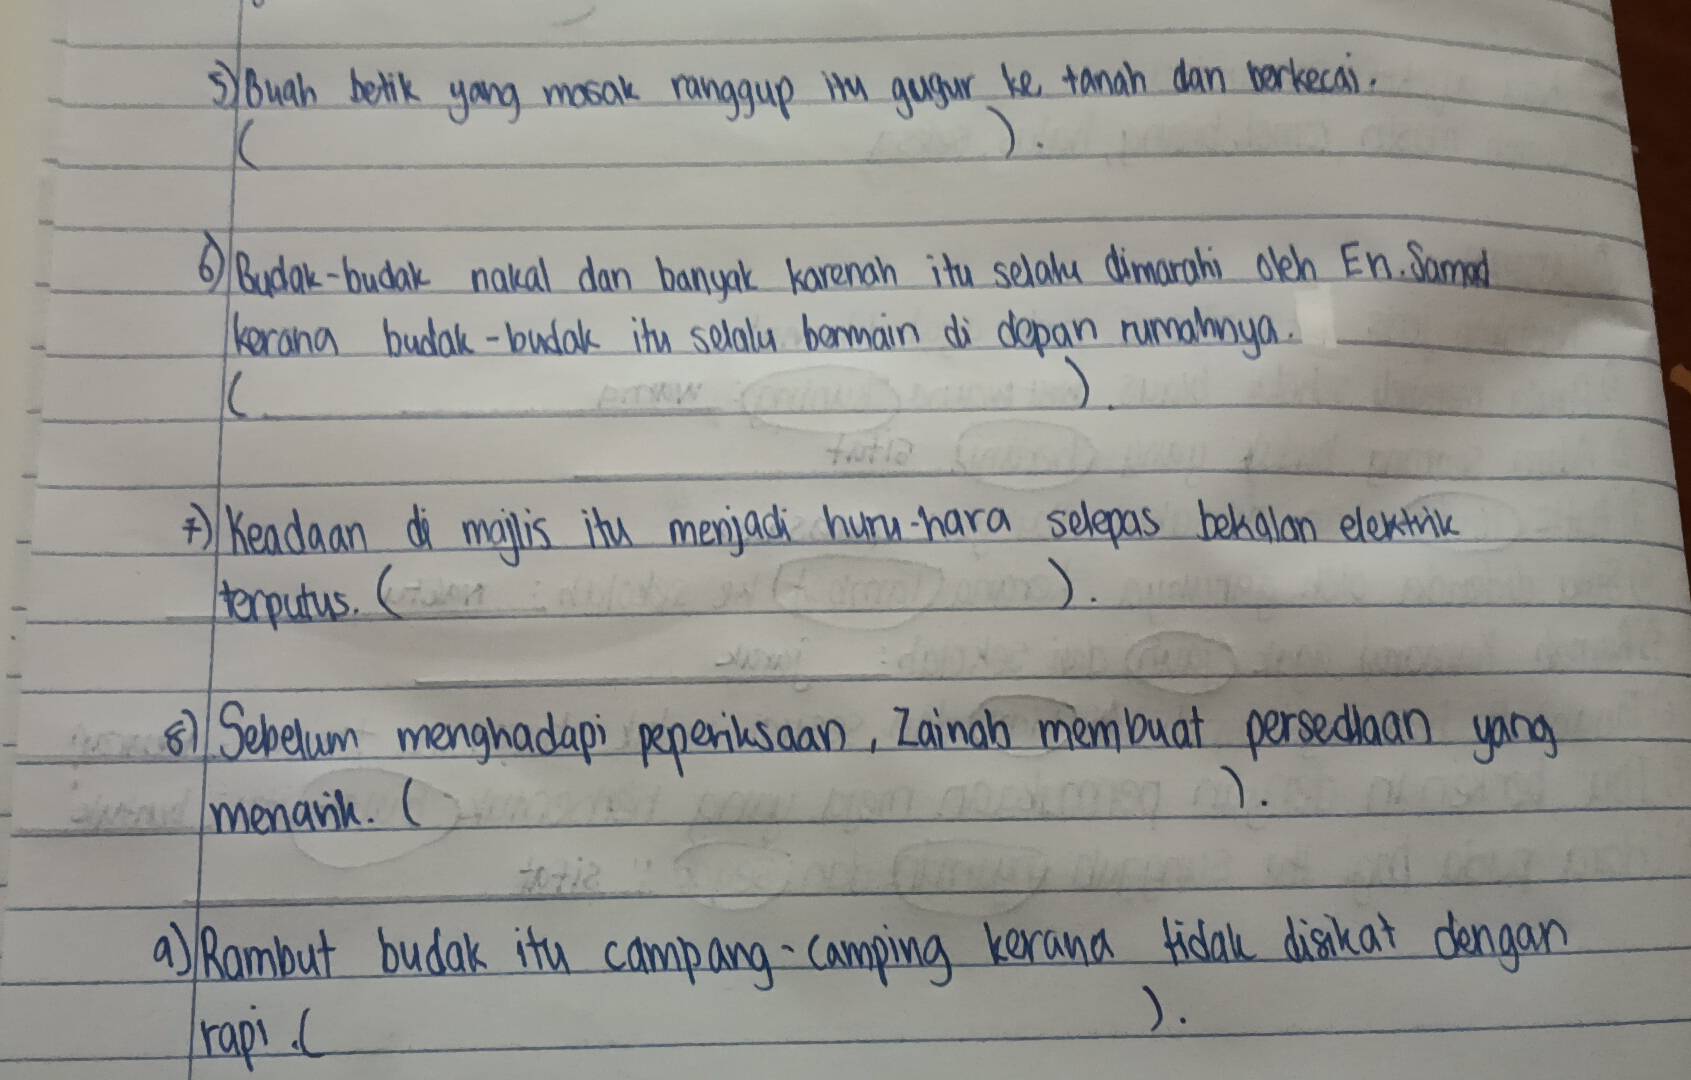 5) Buah betik yang masak ranggup itu gugur ke tanah dan berkecai.
( ).
6) Budak-budak nakal dan banyak karenah itu selalu dimarahi oleh En. Samad
kerana budak-budak itu selalu bermain di depan rumahnya.
( ).
7) Keadaan di majlis itu menjadi huru-hara selepas bekalan elektrik
terputus. ( ).
8) Sebelum menghadapi peperiksaan, Zainab membuat persediaan yang
menarik. ( ).
9) Rambut budak itu campang-camping kerana tidak disikat dengan
rapi. ( ).